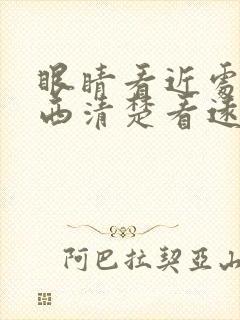 眼睛看近处
西清楚看远
阿巴拉契亚山